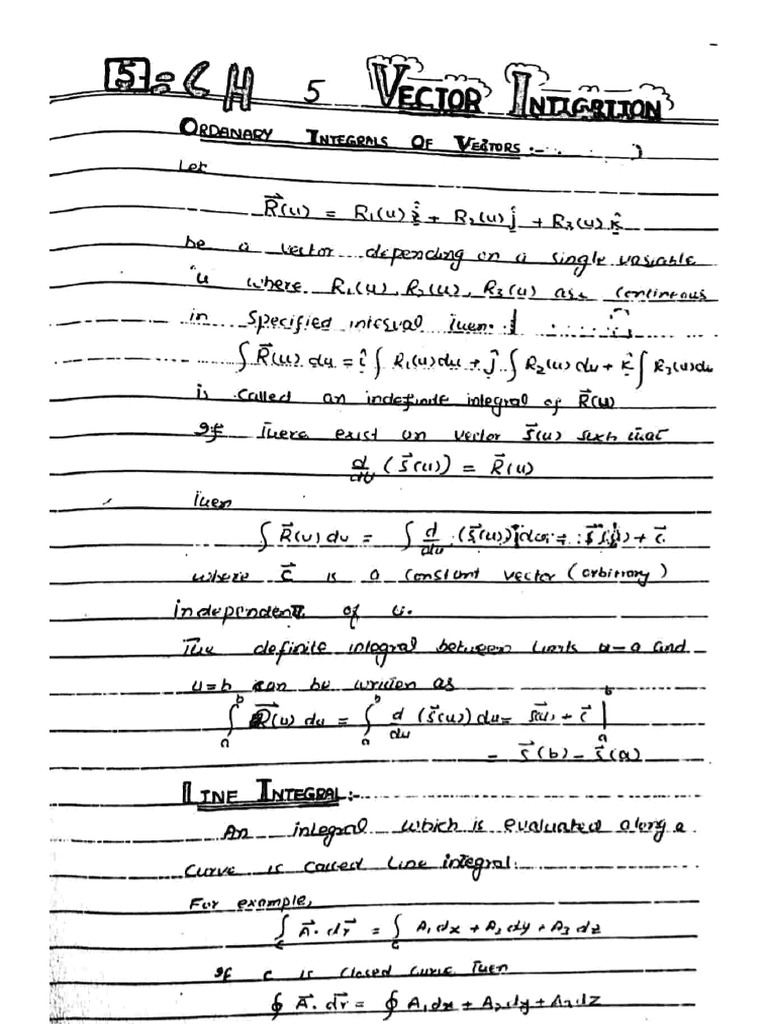 5 = CH 5 VECTOR INTIGRTION
ORDANARY INTEGRALS OF VECTORS :-
Let
R⃗(u) = R₁(u) î + R₂(u) ĵ + R₃(u) k̂
be a vector depending on a single variable
u where R₁(u), R₂(u), R₃(u) are continous
in specified interval Then
∫ R⃗(u) du = î ∫ R₁(u) du + ĵ ∫ R₂(u) du + k̂ ∫ R₃(u) du
is called an indefinite integral of R⃗(u)
If There exist an vector S⃗(u) such that
d/du (S⃗(u)) = R⃗(u)
Then
∫ R⃗(u) du = ∫ d/du (S⃗(u)) du = S⃗(u) + C⃗
where C⃗ is a constant vector (arbitrary)
independent of u.
The definite integral between limits u=a and
u=b can be written as
∫ₐᵇ R⃗(u) du = ∫ₐᵇ d/du (S⃗(u)) du = S⃗(u) + C⃗ |ₐᵇ
= S⃗(b) - S⃗(a)
LINE INTEGRAL :-
An integral which is evaluated along a
curve is called line integral.
For example,
∫c A⃗ . dr⃗ = ∫c A₁dx + A₂dy + A₃dz
If c is closed curve Then
∮ A⃗ . dr⃗ = ∮ A₁dx + A₂dy + A₃dz